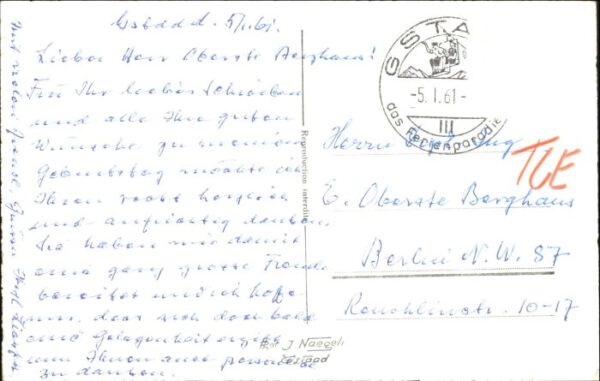 Gstaad d. 5/1.61.
Lieber Herr Oberste Berghaus!
Für Ihr liebes Schreiben
und alle Ihre guten
Wünsche zu meinem
Geburtstag möchte ich
Ihnen recht herzlich
und aufrichtig danken.
Sie haben mir damit
eine ganz grosse Freude
bereitet und ich hoffe
nun, dass sich doch bald
eine Gelegenheit ergibt
um Ihnen auch persönlich
zu danken.
Mit vielen
Reproduction interdite
J Naegeli
Gstaad
GSTA
-5.1.61-
III
das Ferienparadie
Herrn Ing
TCE
E. Oberste Berghaus
Berlin N.W. 87
Reuchlinstr. 10-17